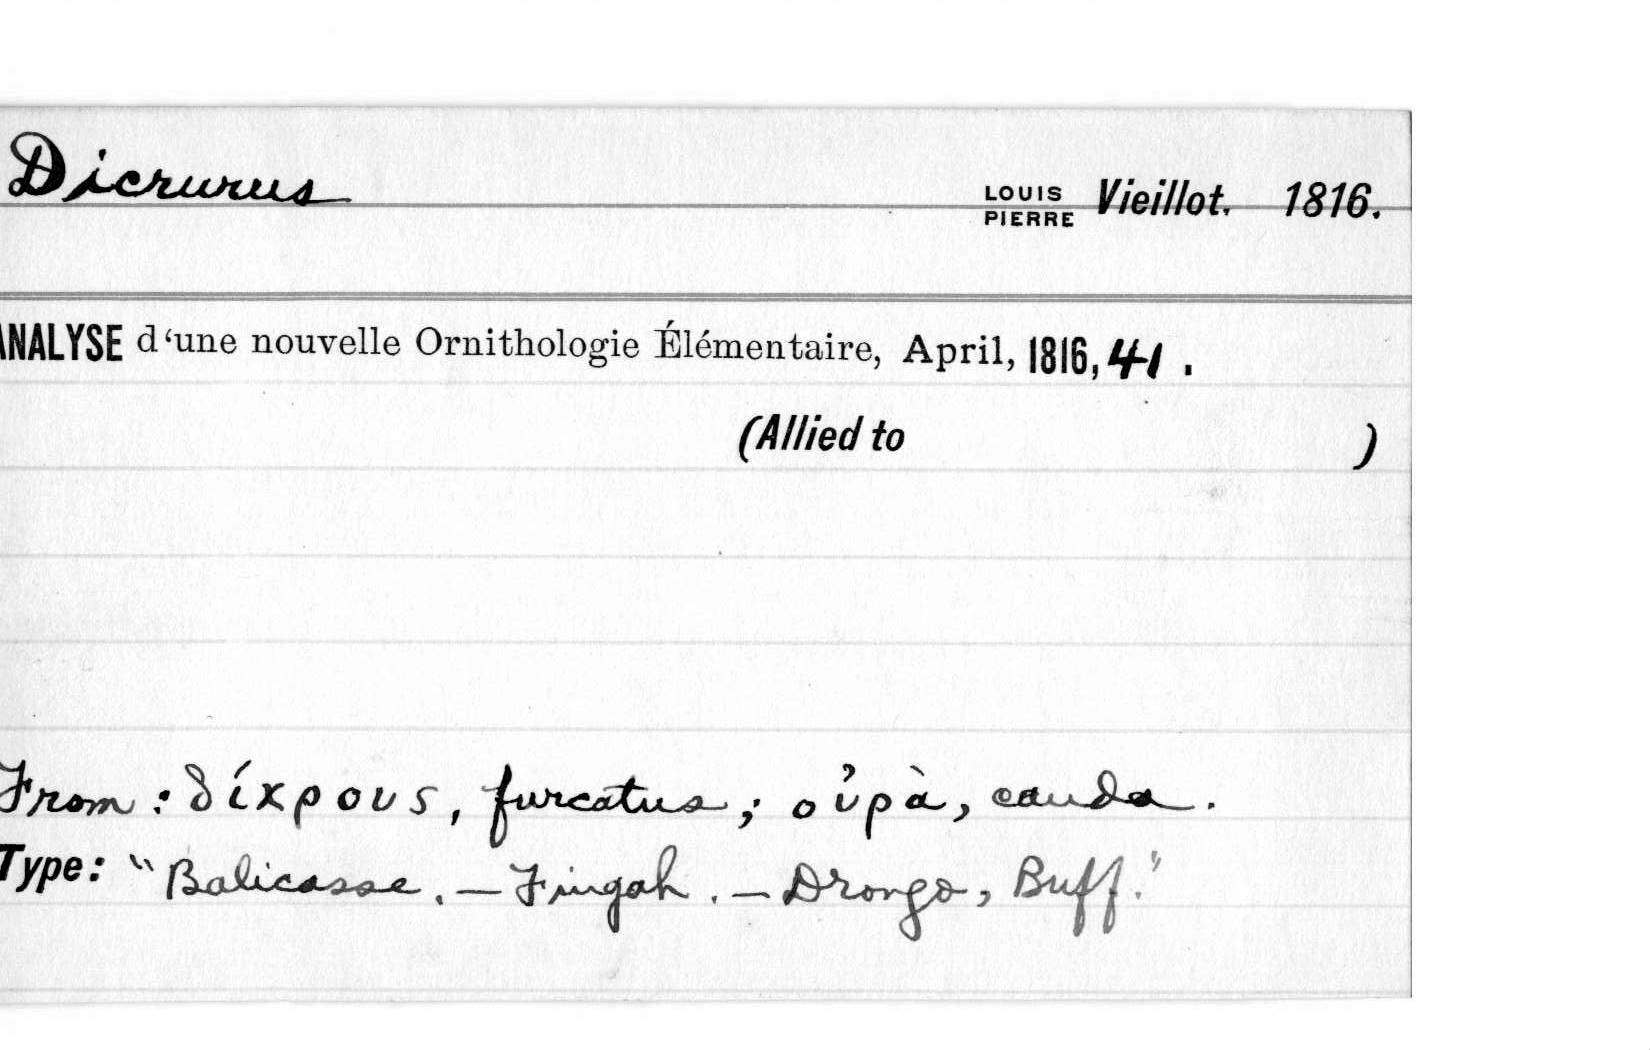 Dicrurus LOUIS PIERRE Vieillot. 1816.
ANALYSE d'une nouvelle Ornithologie Élémentaire, April, 1816, 41.
(Allied to )
From: δίκρους, furcatus; οὐρὰ, cauda.
Type: "Balicasse. — Fingah. — Drongo, Buff."